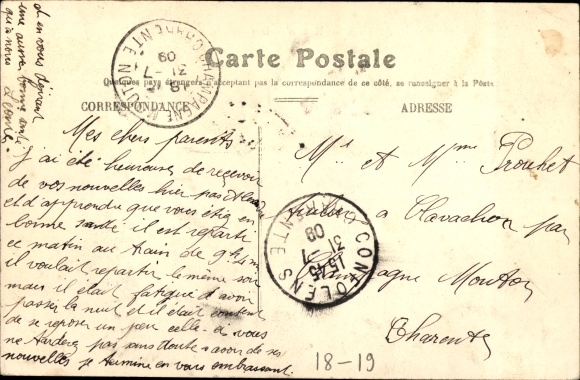 Carte Postale
Quelques pays étrangers n'acceptant pas la correspondance de ce côté, se renseigner à la Poste.
CORRESPONDANCE
ADRESSE
Mes chers parents
j'ai été heureuse de reçevoir
de vos nouvelles hier pas
et d'apprendre que vous étiez en
bonne santé il est reparti
ce matin au train de
il voulait repartir le même soir
mais il était fatigué d'avoir
passé la nuit et il était content
de se reposer un peu celle-à vous
ne tardera pas sans doute à avoir de ses
nouvelles je termine en vous embrassant.
et en vous désirant
une aussi bonne santé
qu'à nous
Mr et Mme Prouhet
à Clavachon par
Champagne Mouton
Charente
CHAMPAGNE MOUTON
CHARENTE
31 -7
09
CONFOLENS
CHARENTE
15 45
31 7
09
18-19